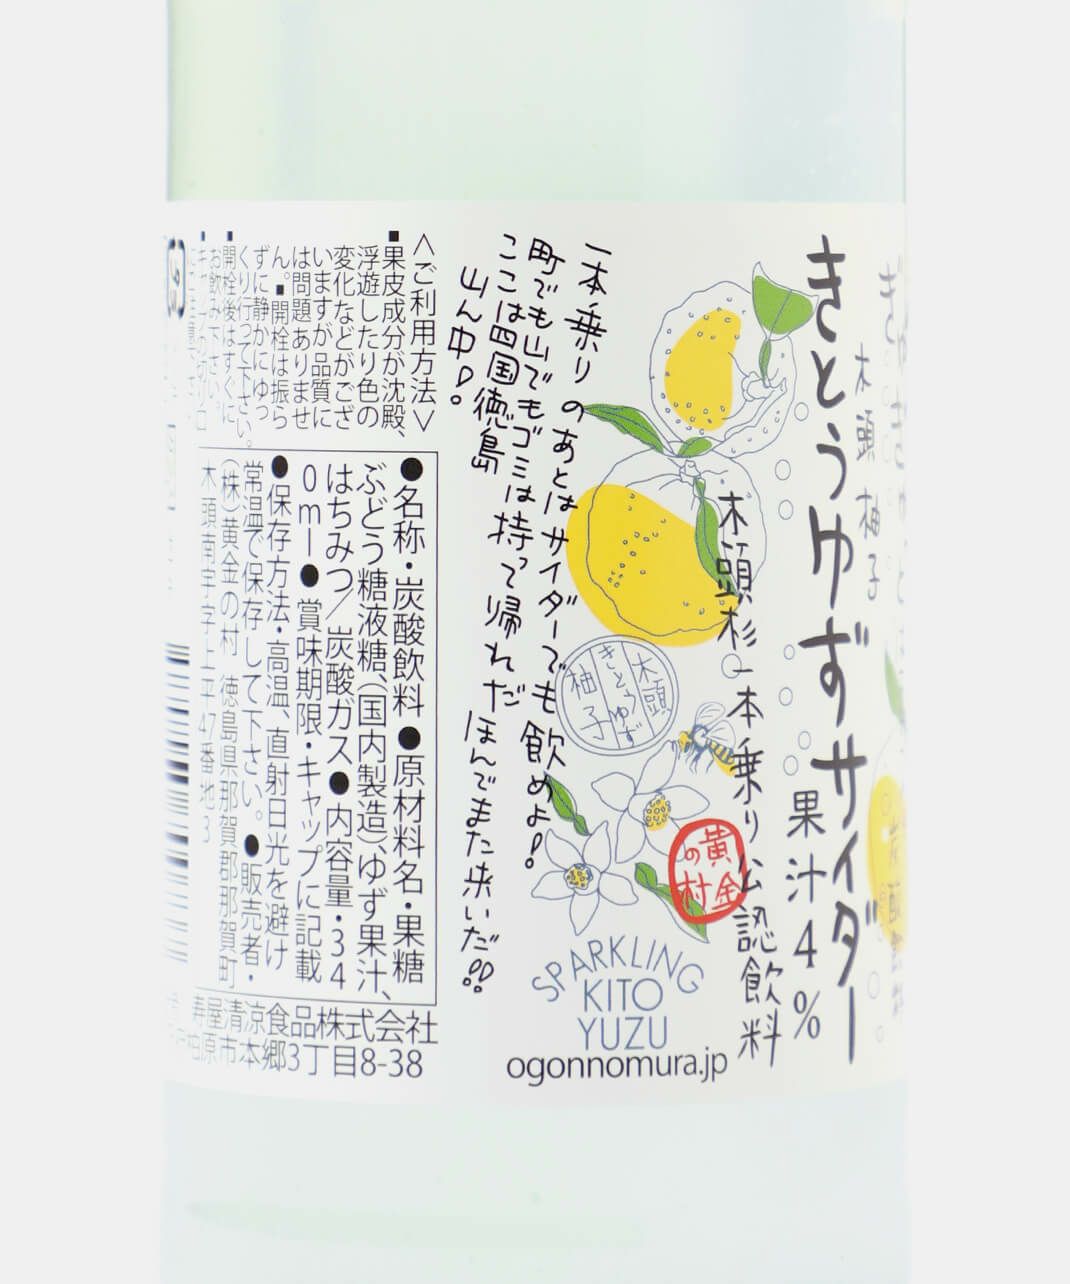 きとうゆずサイダー
果汁4%
木頭柚子
木頭杉一本乗り公認飲料
一本乗りのあとはサイダーでも飲めよ!
町でも山でもゴミは持って帰れだ
ここは四国徳島
ほんでまた来いだ!!
山ん中!。
木頭
きとうゆず
柚子
黄金
の村
SPARKLING
KITO
YUZU
ogonnomura.jp
<ご利用方法>
■果皮成分が沈殿、
浮遊したり色の
変化などがござ
いますが品質に
は問題ありませ
ん。■開栓は振ら
ずに静かにゆっ
くり行って下さい。
■開栓後はすぐに
お飲み下さい。
●名称・炭酸飲料●原材料名・果糖
ぶどう糖液糖、(国内製造)、ゆず果汁、
はちみつ/炭酸ガス●内容量・34
0ml●賞味期限・キャップに記載
●保存方法・高温、直射日光を避け
常温で保存して下さい。●販売者・
(株)黄金の村 徳島県那賀郡那賀町
木頭南宇字上平47番地3
寿屋清涼食品株式会社
柏原市本郷3丁目8-38